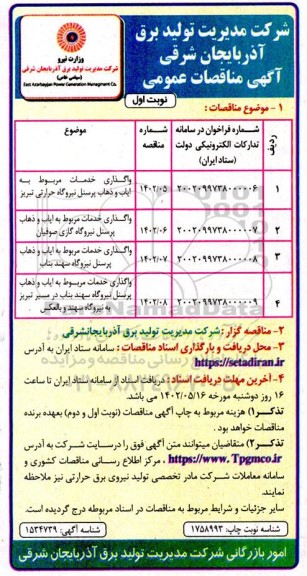 شرکت مدیریت تولید برق
آذربایجان شرقی
آگهی مناقصات عمومی
وزارت نیرو
شرکت مدیریت تولید برق آذربایجان شرقی
(سهامی خاص)
East Azarbayjan Power Generation Managment Co.
نوبت اول
۱- موضوع مناقصات :
ردیف
شماره فراخوان در سامانه تدارکات الکترونیکی دولت (ستاد ایران)
شماره مناقصه
موضوع
۱
۲۰۰۲۰۹۹۷۳۸۰۰۰۰۰۶
۱۴۰۲/۰۵
واگذاری خدمات مربوط به ایاب و ذهاب پرسنل نیروگاه حرارتی تبریز
۲
۲۰۰۲۰۹۹۷۳۸۰۰۰۰۰۷
۱۴۰۲/۰۶
واگذاری خدمات مربوط به ایاب و ذهاب پرسنل نیروگاه گازی صوفیان
۳
۲۰۰۲۰۹۹۷۳۸۰۰۰۰۰۸
۱۴۰۲/۰۷
واگذاری خدمات مربوط به ایاب و ذهاب پرسنل نیروگاه سهند بناب
۴
۲۰۰۲۰۹۹۷۳۸۰۰۰۰۰۹
۱۴۰۲/۰۸
واگذاری خدمات مربوط به ایاب و ذهاب پرسنل نیروگاه سهند بناب در مسیر تبریز به نیروگاه سهند و بالعکس
۲- مناقصه گزار : شرکت مدیریت تولید برق آذربایجانشرقی
۳- محل دریافت و بارگذاری اسناد مناقصات : سامانه ستاد ایران به آدرس
https://setadiran.ir
۴- آخرین مهلت دریافت اسناد : دریافت اسناد از سامانه ستاد ایران تا ساعت
۱۶ روز دوشنبه مورخه ۱۴۰۲/۰۵/۱۶ می باشد.
تذکر۱) هزینه مربوط به چاپ آگهی مناقصات (نوبت اول و دوم) بعهده برنده
مناقصات خواهد بود .
تذکر۲) متقاضیان میتوانند متن آگهی فوق را درسایت شرکت به آدرس
https://www.Tpgmco.ir ، مرکز اطلاع رسانی مناقصات کشوری و
سامانه معاملات شرکت مادر تخصصی تولید نیروی برق حرارتی نیز ملاحظه
نمایند.
سایر جزئیات و شرایط مربوط به مناقصات در اسناد مربوطه درج گردیده است.
شناسه نوبت چاپ: ۱۷۵۸۹۹۳
شناسه آگهی: ۱۵۳۴۷۳۹
امور بازرگانی شرکت مدیریت تولید برق آذربایجان شرقی